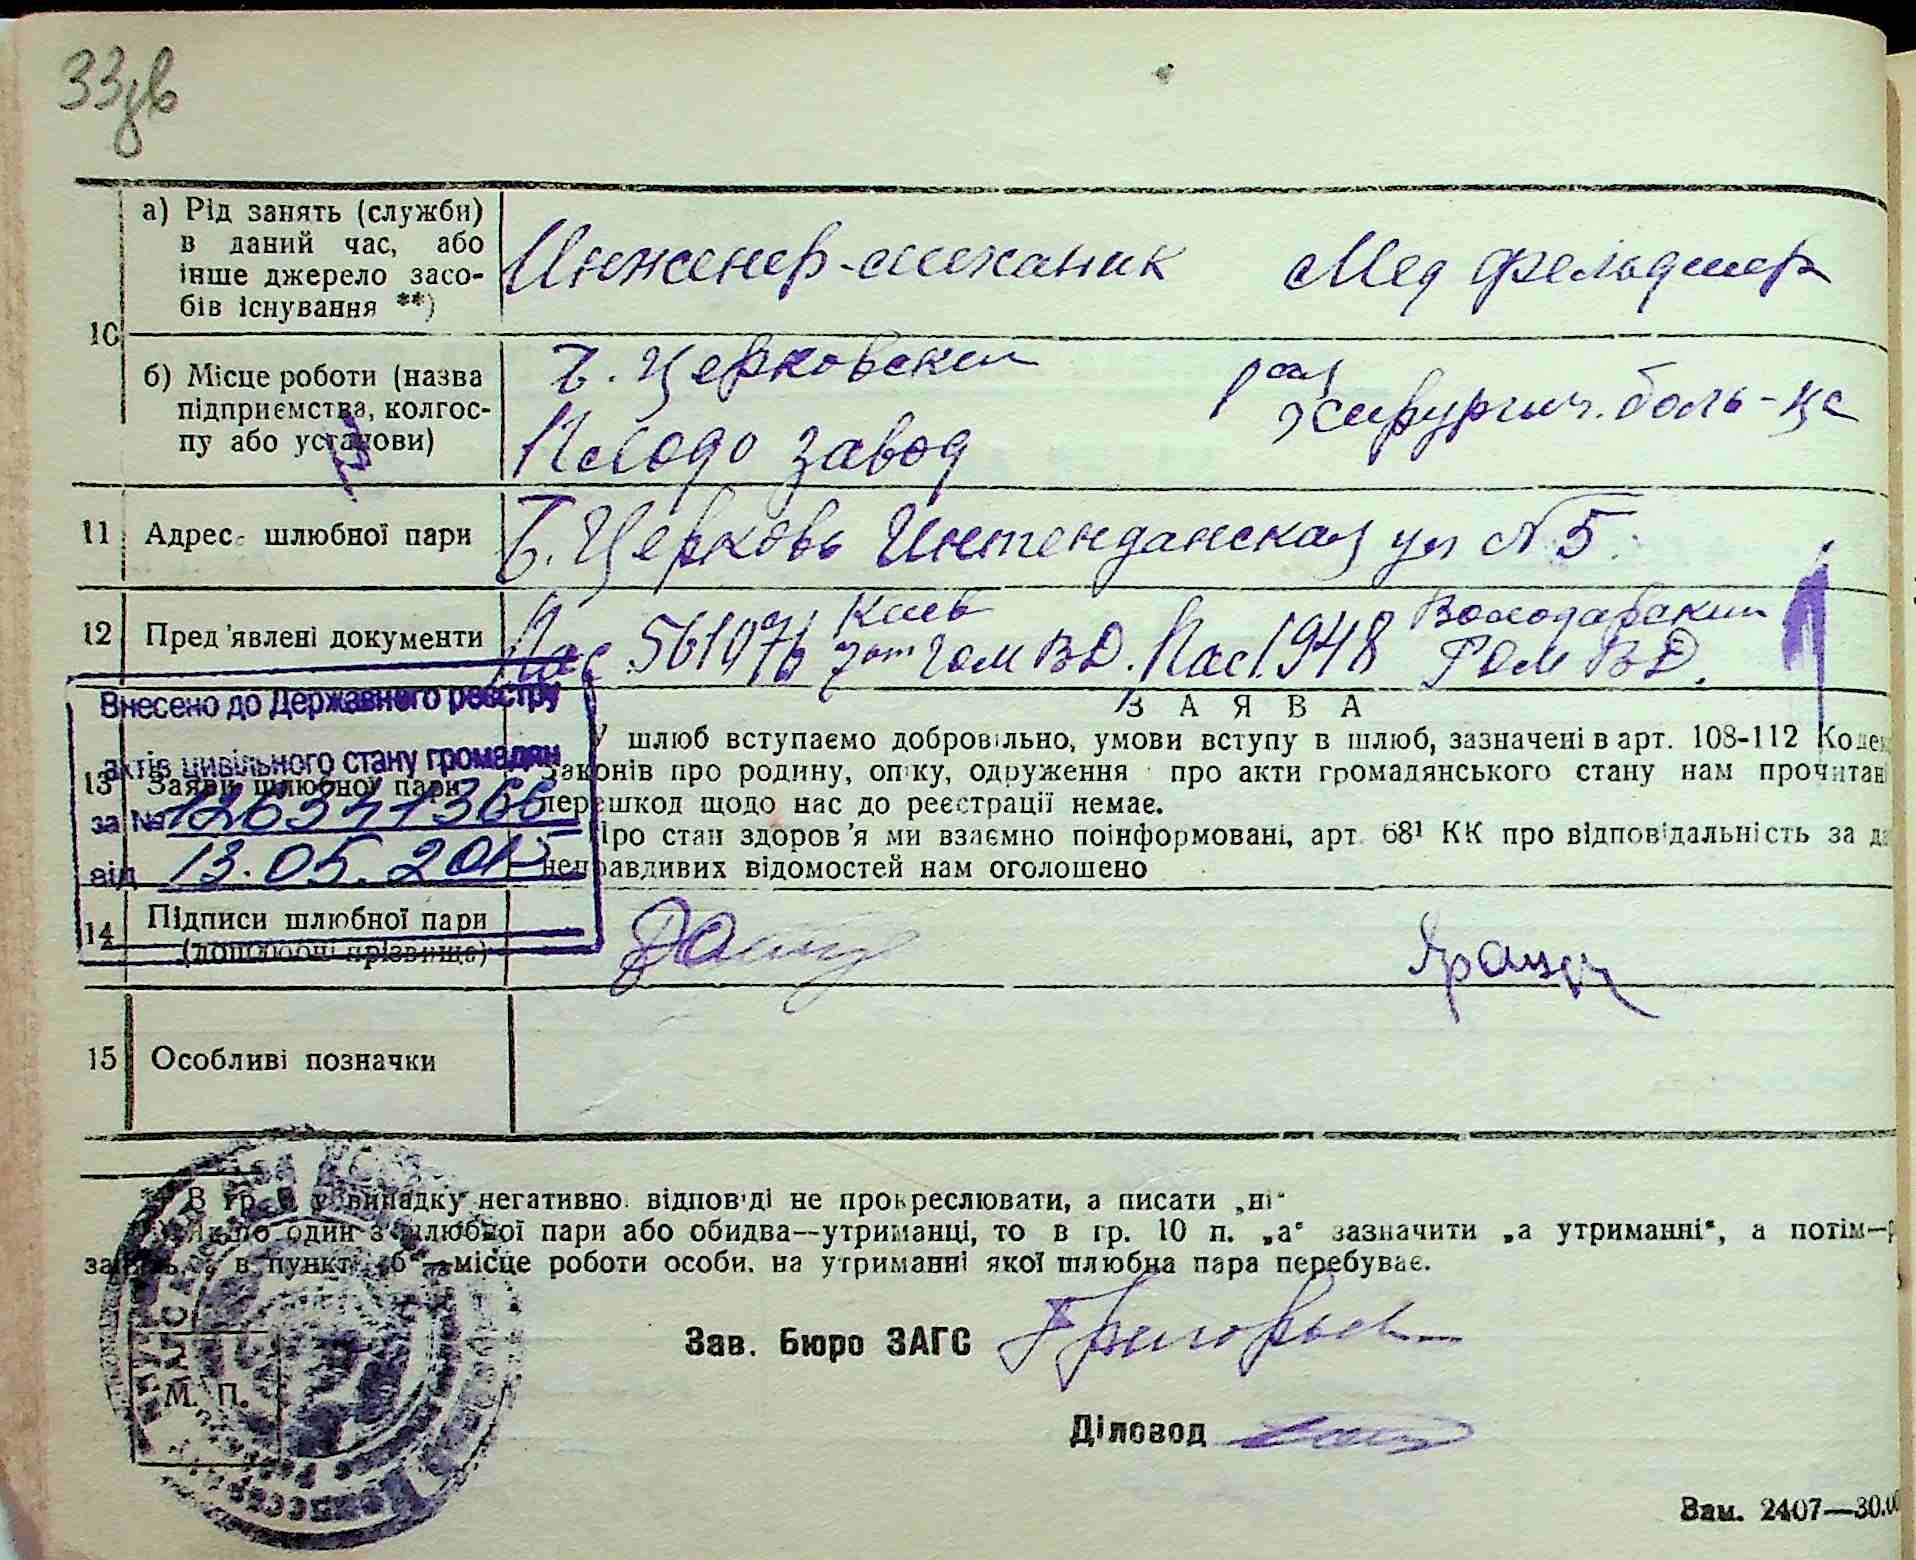 33зв
а) Рід занять (служби)
в даний час, або
інше джерело засо-
бів існування **)
Инженер-механик Мед фельдшер
10
б) Місце роботи (назва
підприємства, колгос-
пу або установи)
Б. Церковский
завод
рай
Хирургич. боль-ца
11 Адрес шлюбної пари
Б. Церковь Интенданская ул № 5
12 Пред'явлені документи
Киев Володарский
Пас 561076 7от ГомВД. Пас. 1948 РОМВД.
Внесено до Державного реєстру
актів цивільного стану громадян
за №
від 13.05.2015
ЗАЯВА
13 Заяви шлюбної пари
У шлюб вступаємо добровільно, умови вступу в шлюб, зазначені в арт. 108-112 Кодек
законів про родину, опіку, одруження про акти громадянського стану нам прочитані
перешкод щодо нас до реєстрації немає.
Про стан здоров'я ми взаємно поінформовані, арт. 68¹ КК про відповідальність за да
неправдивих відомостей нам оголошено
14 Підписи шлюбної пари
(дошлюбні прізвища)
15 Особливі позначки
В гр. у випадку негативно відповіді не прокреслювати, а писати „ні“
Якщо один з шлюбної пари або обидва—утриманці, то в гр. 10 п. „а“ зазначити „а утриманні“, а потім—р
в пункті „б“—місце роботи особи, на утриманні якої шлюбна пара перебуває.
Зав. Бюро ЗАГС Григорьев
М. П.
Діловод
Зам. 2407—30.0